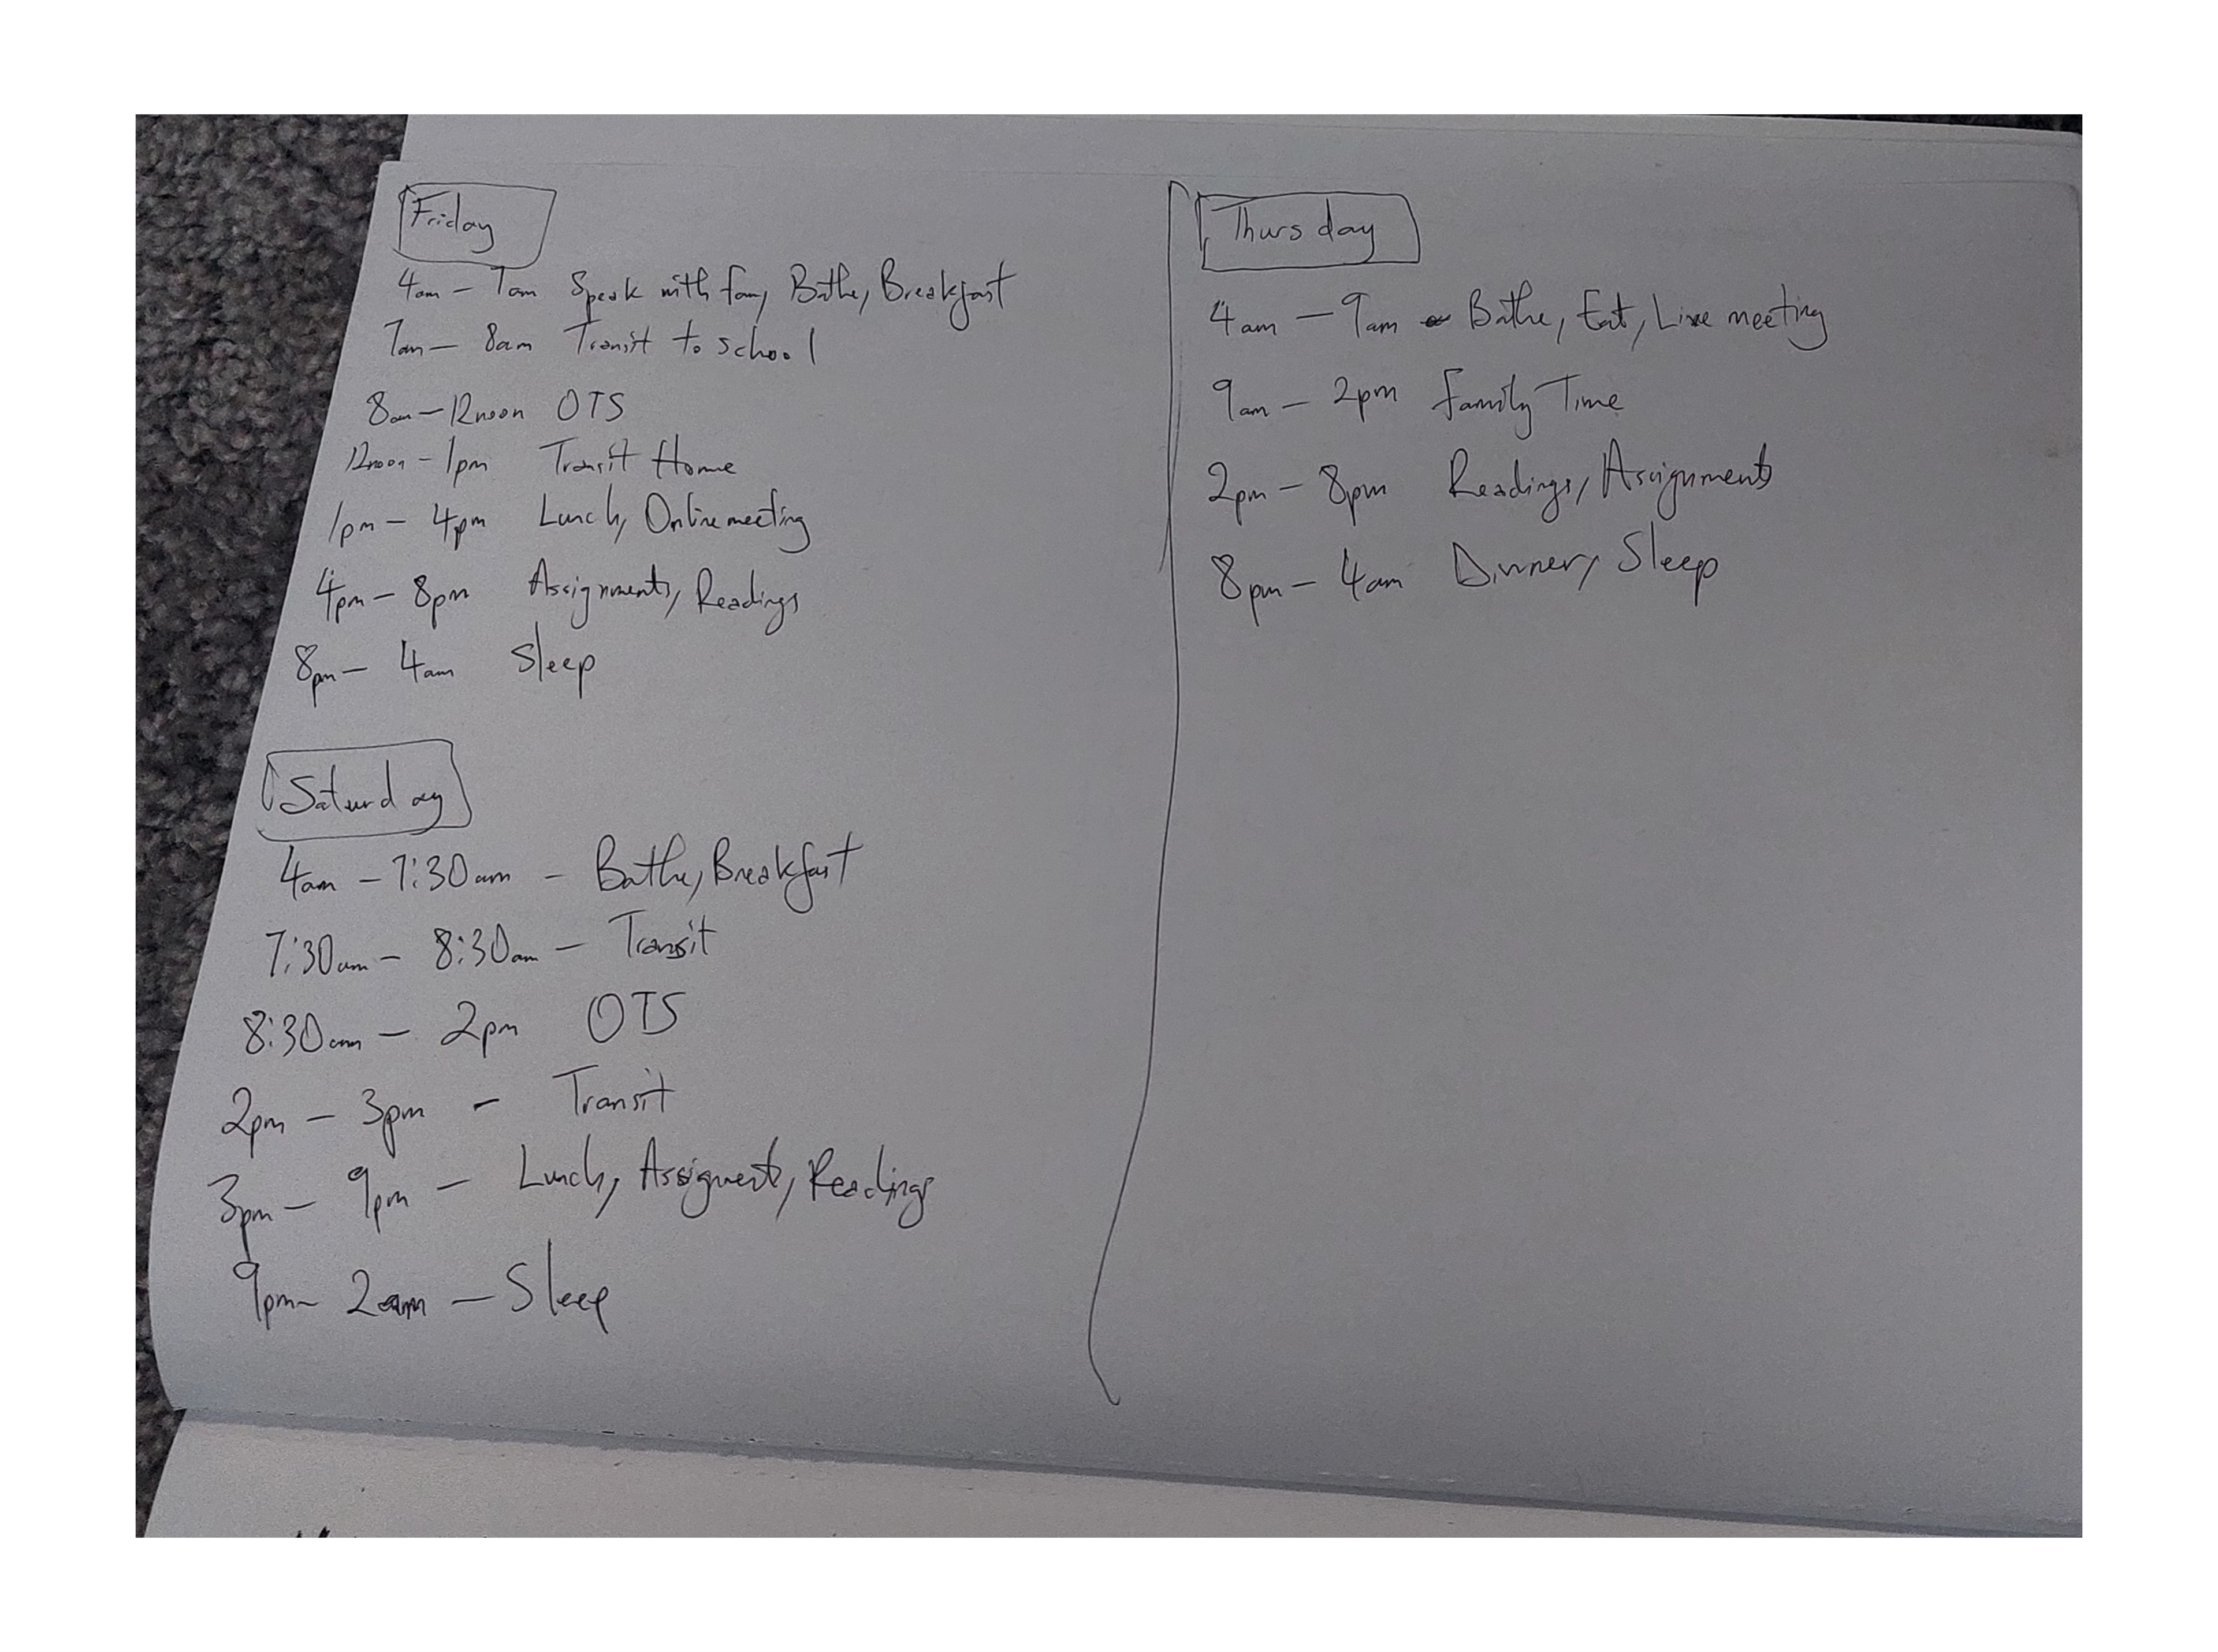 Friday
4am - 7am Speak with fam, Bathe, Breakfast
7am - 8am Transit to school
8am - 12noon OTS
12noon - 1pm Transit Home
1pm - 4pm Lunch, Online meeting
4pm - 8pm Assignments, Readings
8pm - 4am Sleep
Saturday
4am - 7:30am - Bathe, Breakfast
7:30am - 8:30am - Transit
8:30am - 2pm OTS
2pm - 3pm - Transit
3pm - 9pm - Lunch, Assigment, Readings
9pm - 2am - Sleep
Thursday
4am - 9am - Bathe, Eat, Live meeting
9am - 2pm Family Time
2pm - 8pm Readings, Assignments
8pm - 4am Dinner, Sleep